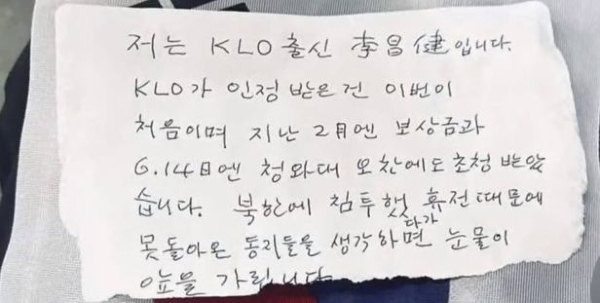 저는 KLO출신 李昌健입니다.
KLO가 인정 받은건 이번이
처음이며 지난 2月엔 보상금과
6.14日엔 청와대 오찬에도 초청 받았
습니다. 북한에 침투했 휴전때문에
다가
못돌아온 동지들을 생각하면 눈물이
앞을 가립니다